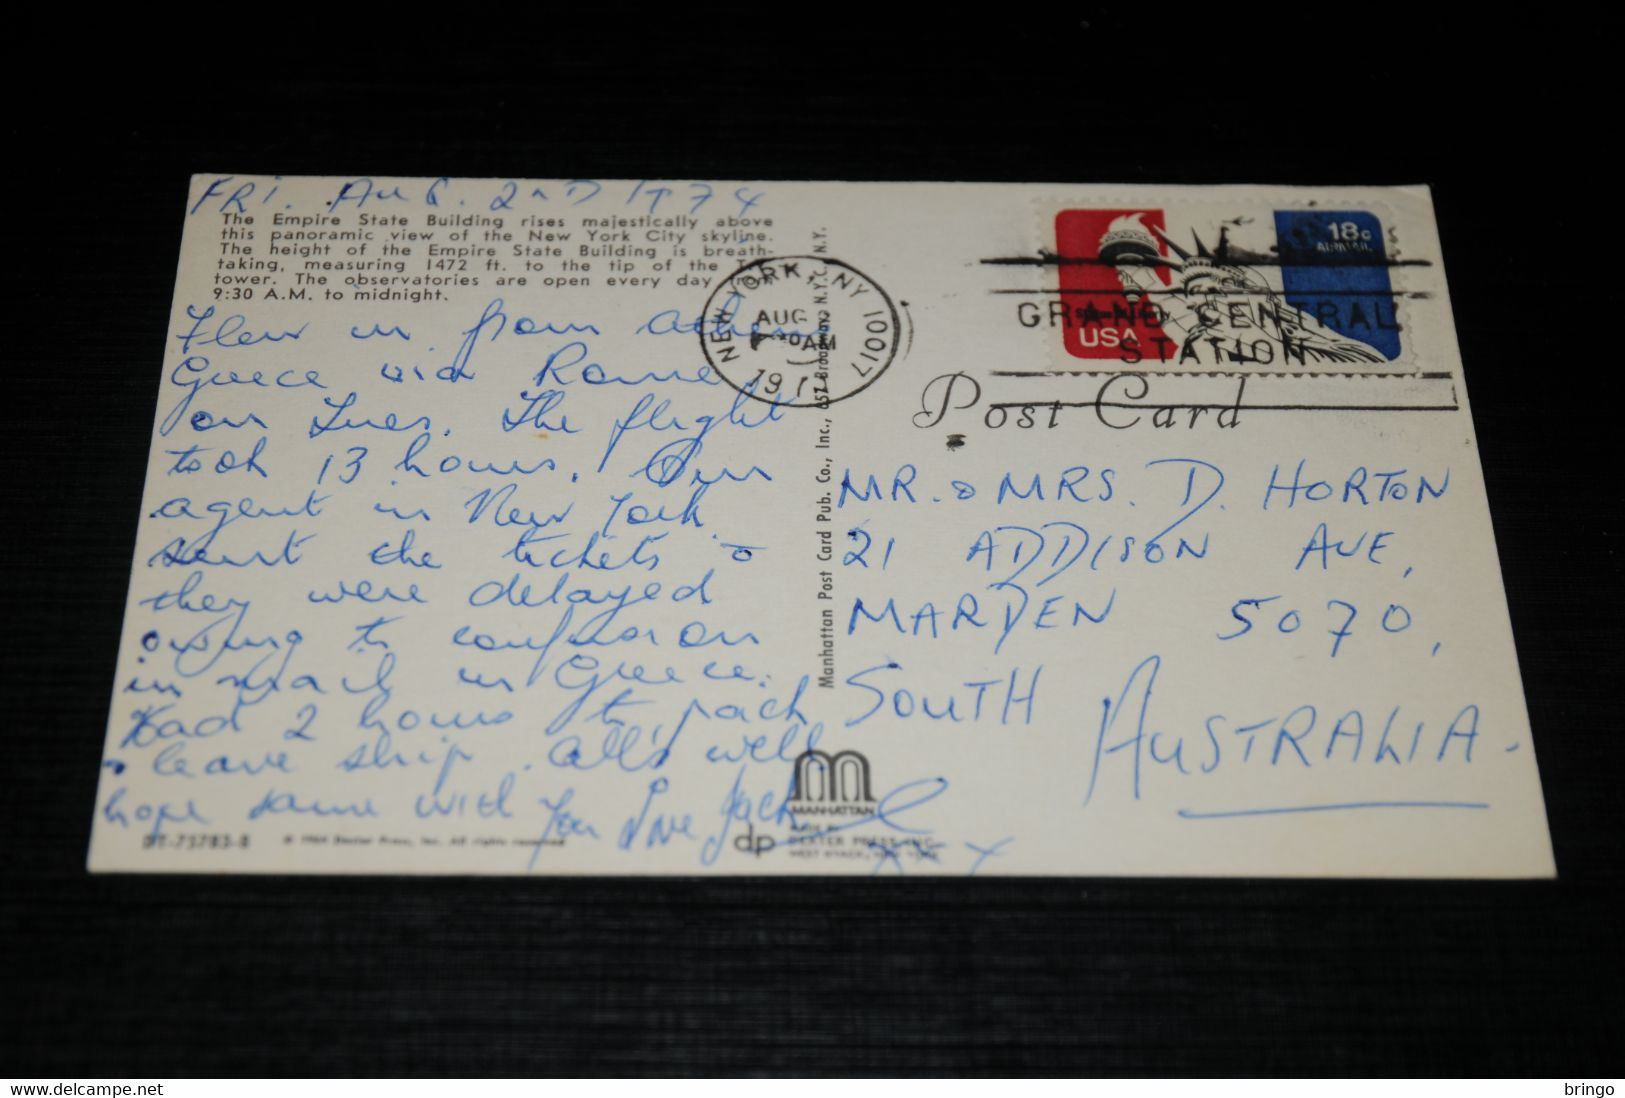 FRI. AUG. 2ND 1974
The Empire State Building rises majestically above
this panoramic view of the New York City skyline.
The height of the Empire State Building is breath-
taking, measuring 1472 ft. to the tip of the
tower. The observatories are open every day
9:30 A.M. to midnight.
Flew in from Athens
Greece via Rome
on Tues. The flight
took 13 hours. Our
agent in New York
sent the tickets &
they were delayed
owing to confusion
in mail in Greece.
Had 2 hours to pack
& leave ship. All's well
hope same with you Love Jack
XXX
DT-75783-B
© 1964 Dexter Press, Inc. All rights reserved
Manhattan Post Card Pub. Co., Inc., 657 Broadway N.Y.C., N.Y.
MANHATTAN
dp
MADE BY
DEXTER PRESS INC
WEST NYACK, NEW YORK
NEW YORK, NY 10017
AUG
AM
GRAND CENTRAL
STATION
18c
AIRMAIL
USA
Post Card
MR. & MRS. D. HORTON
21 ADDISON AVE,
MARDEN 5070,
SOUTH AUSTRALIA.
bringo